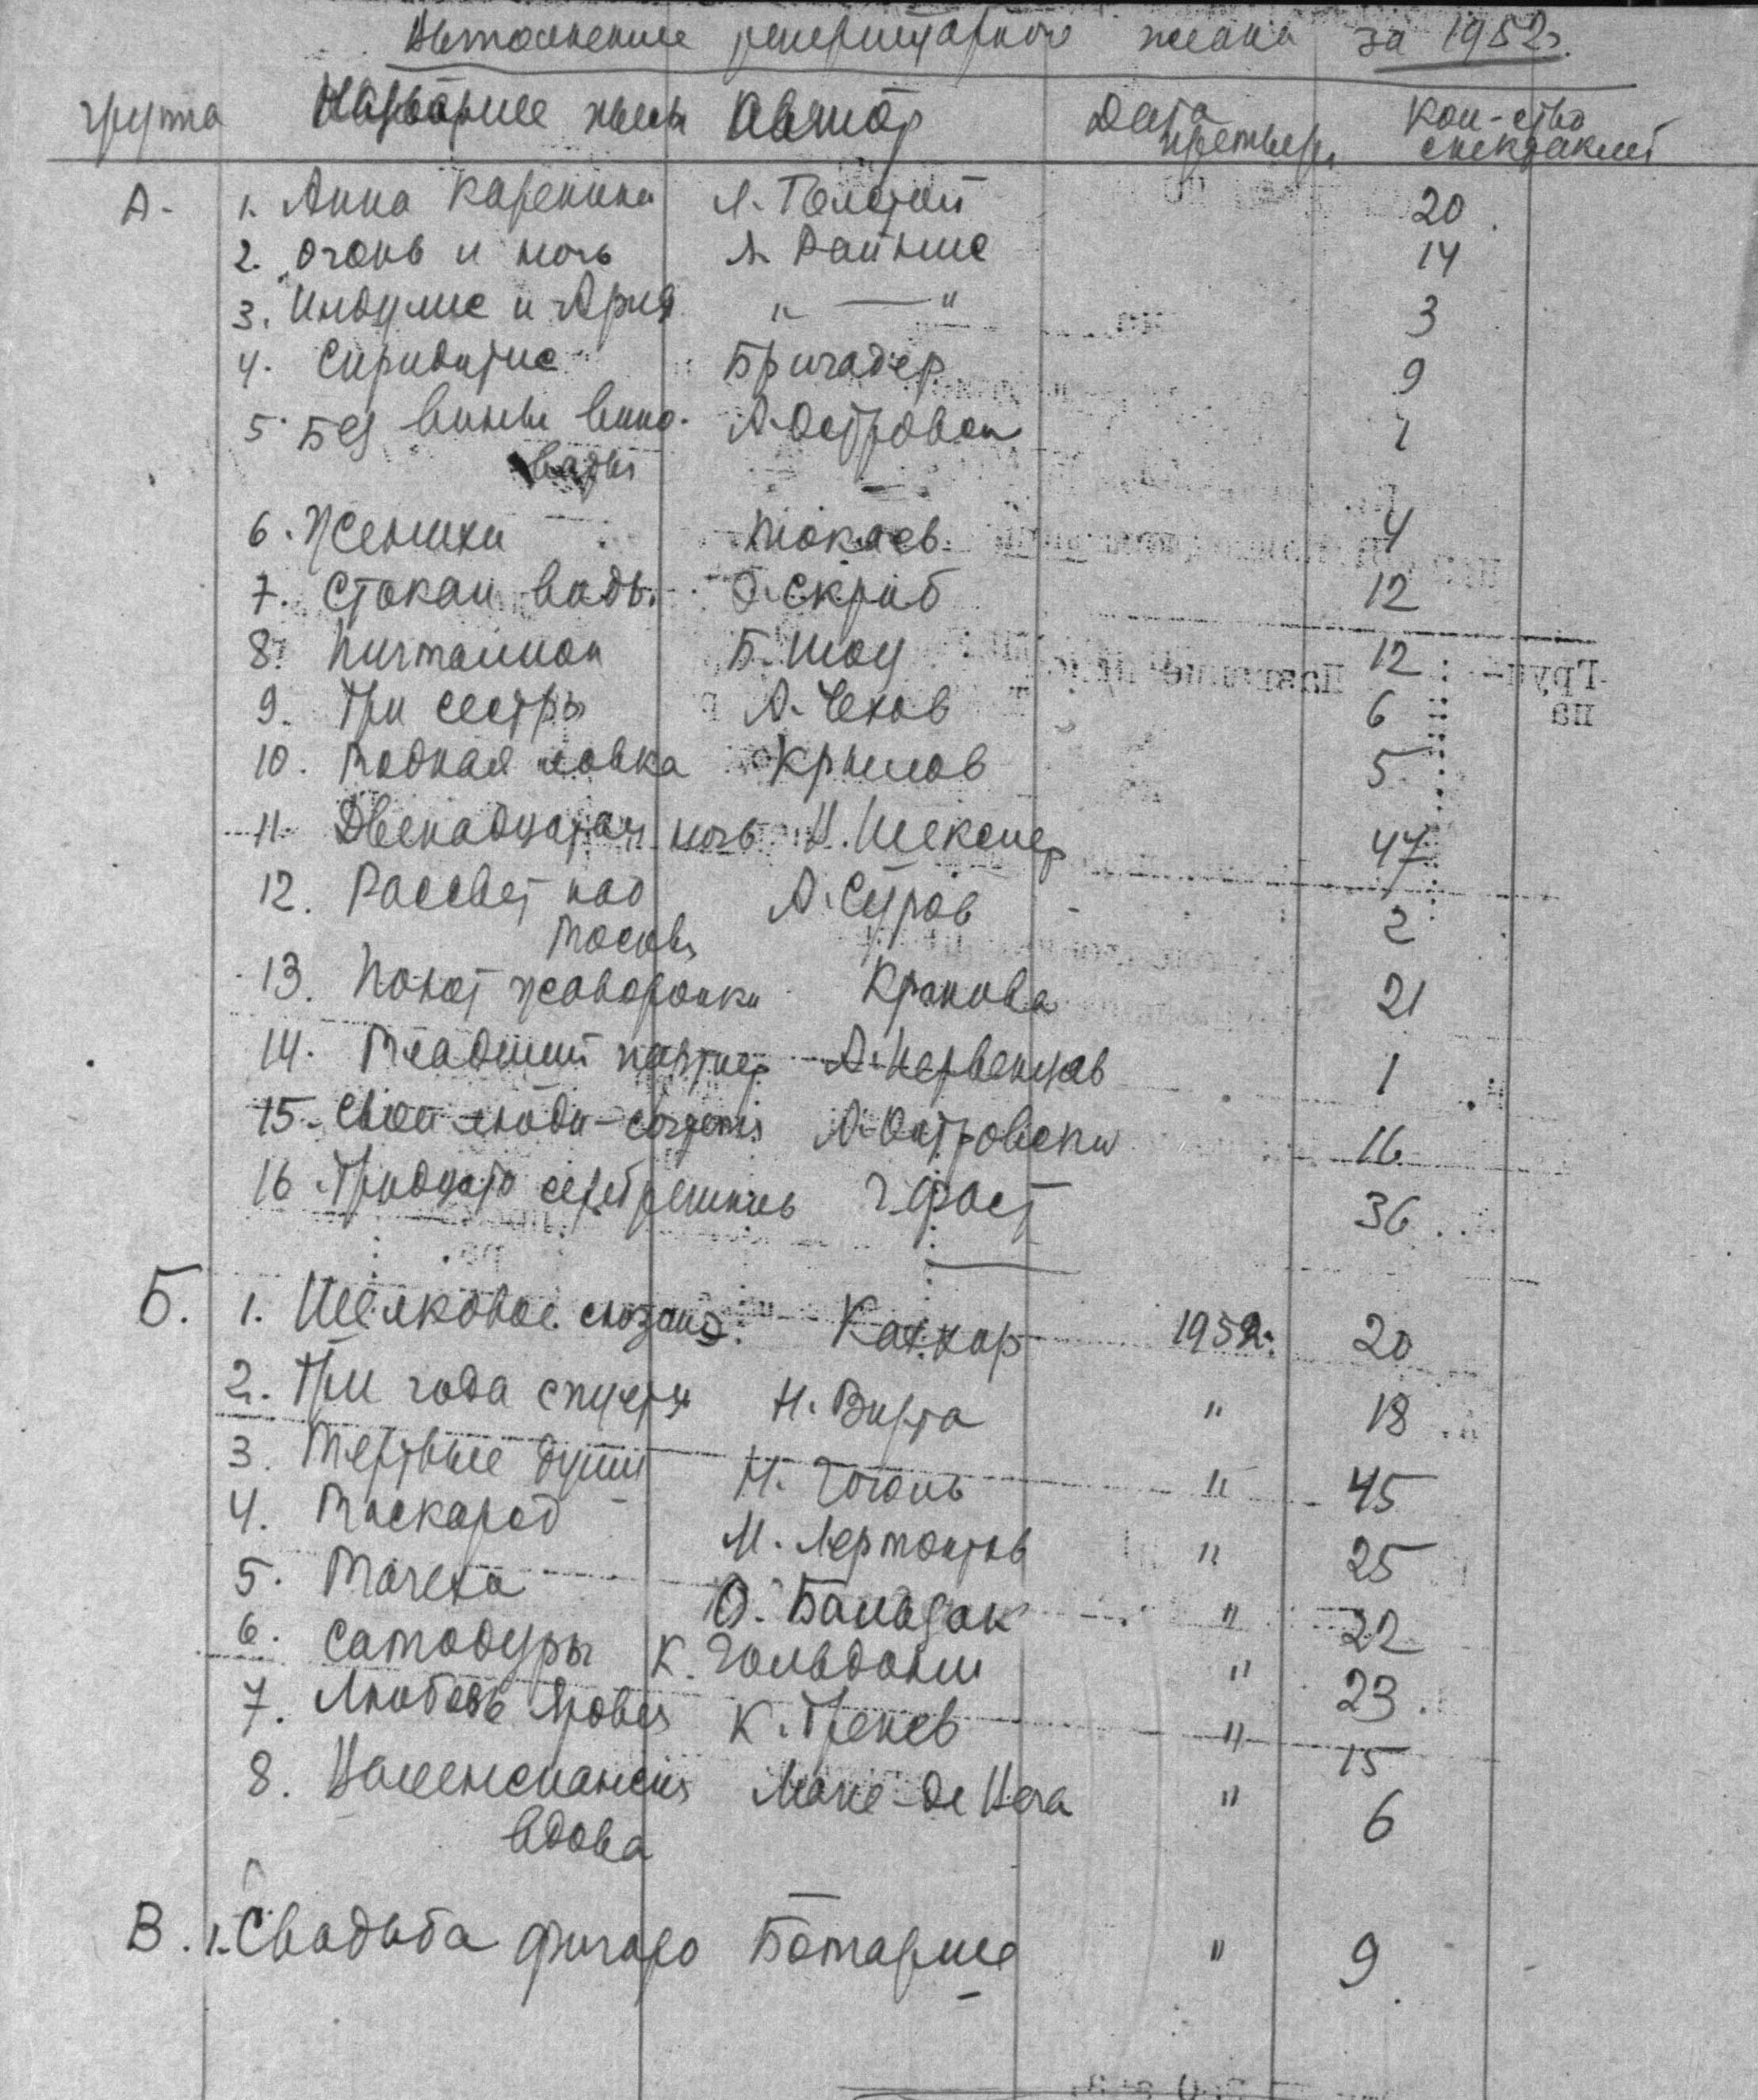 Выполнение репертуарного плана за 1952г.
группа Название пьесы Автор Дата премьеры Кол-ство спектаклей
А. 1. Анна Каренина Л. Толстой 20
2. Огонь и ночь Я. Райнис 14
3. Индулис и Ария " — " 3
4. Спридитис Бригадер 9
5. Без вины вино- А. Островск
ватые
6. Женихи Токаев 4
7. Стакан воды Э. Скриб 12
8. Пигмалион Б. Шоу 12
9. Три сестры А. Чехов 6
10. Модная лавка Крылов 5
11. Двенадцатая ночь В. Шекспир 47
12. Рассвет над А. Суров 2
Москвой
13. Поют жаворонки Крапива 21
14. Младший партнер А. Первенцев 1
15. Свои люди - сочтемся А. Островский 16
16. Тридцать серебренников Г. Фаст 36
Б. 1. Шелковое сюзанэ Каххар 1952г. 20
2. Три года спустя Н. Вирта " 18
3. Мертвые души Н. Гоголь " 45
4. Маскарад М. Лермонтов " 25
5. Мачеха О. Бальзак " 22
6. Самодуры К. Гольдони " 23
7. Любовь Яровая К. Тренев " 15
8. Валенсианская Лопе-де Вега " 6
вдова
В. 1. Свадьба Фигаро Бомарше " 9